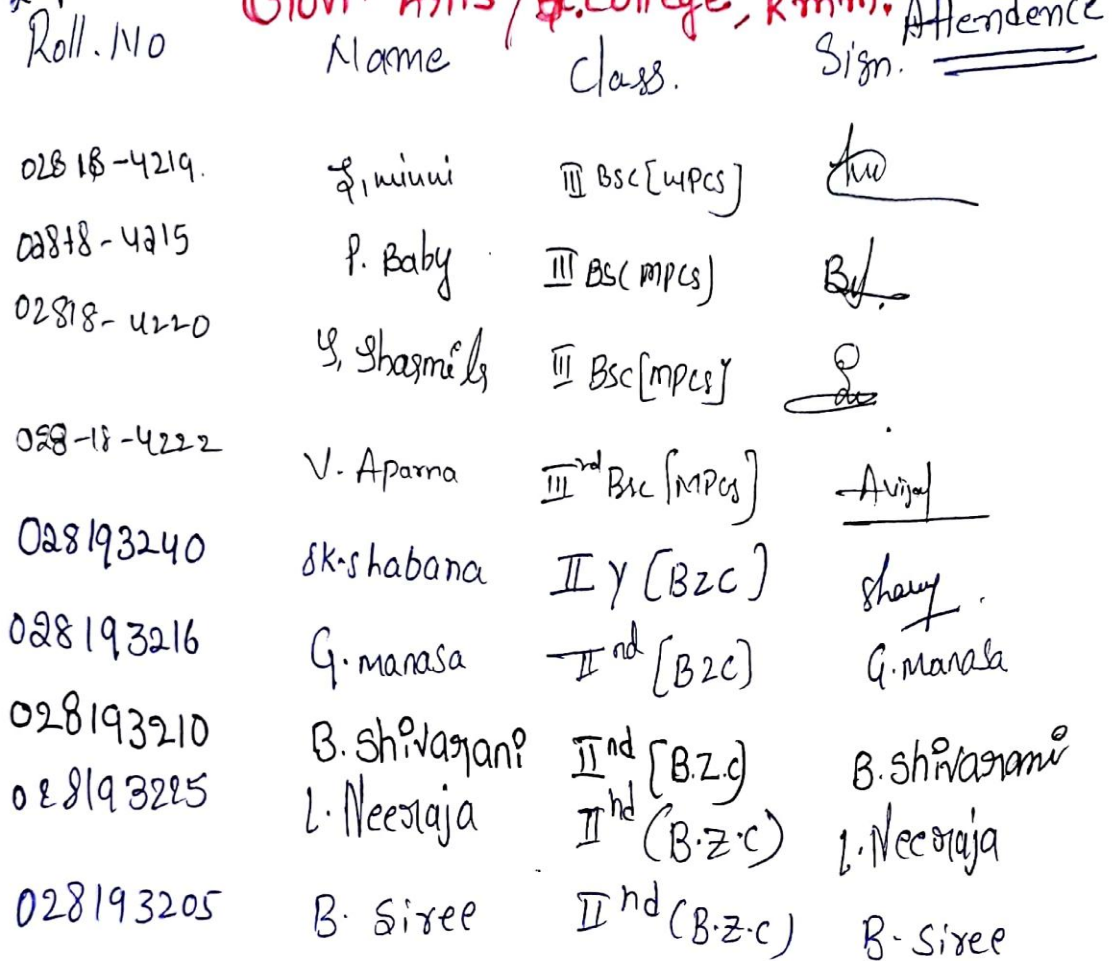 Govt Arts / Sc. College, Kmm. Attendence
Roll. No Name Class. Sign.
02818-4219. minni III BSC [MPCS]
02818-4215 P. Baby III BSC MPCS)
02818-4220 Y, Sharmila III BSC [MPCS]
028-18-4222 V. Aparna III rd Bsc [MPCS] A vijay
028193240 SK-shabana II Y [BZC]
028193216 G. manasa II nd [BZC] G. Manasa
028193210 B. Shivarani II nd [B.Z.C] B. Shivarani
028193225 L. Neeraja II nd (B.Z.C) L. Neeraja
028193205 B. Siree II nd (B.Z.C) B. Siree